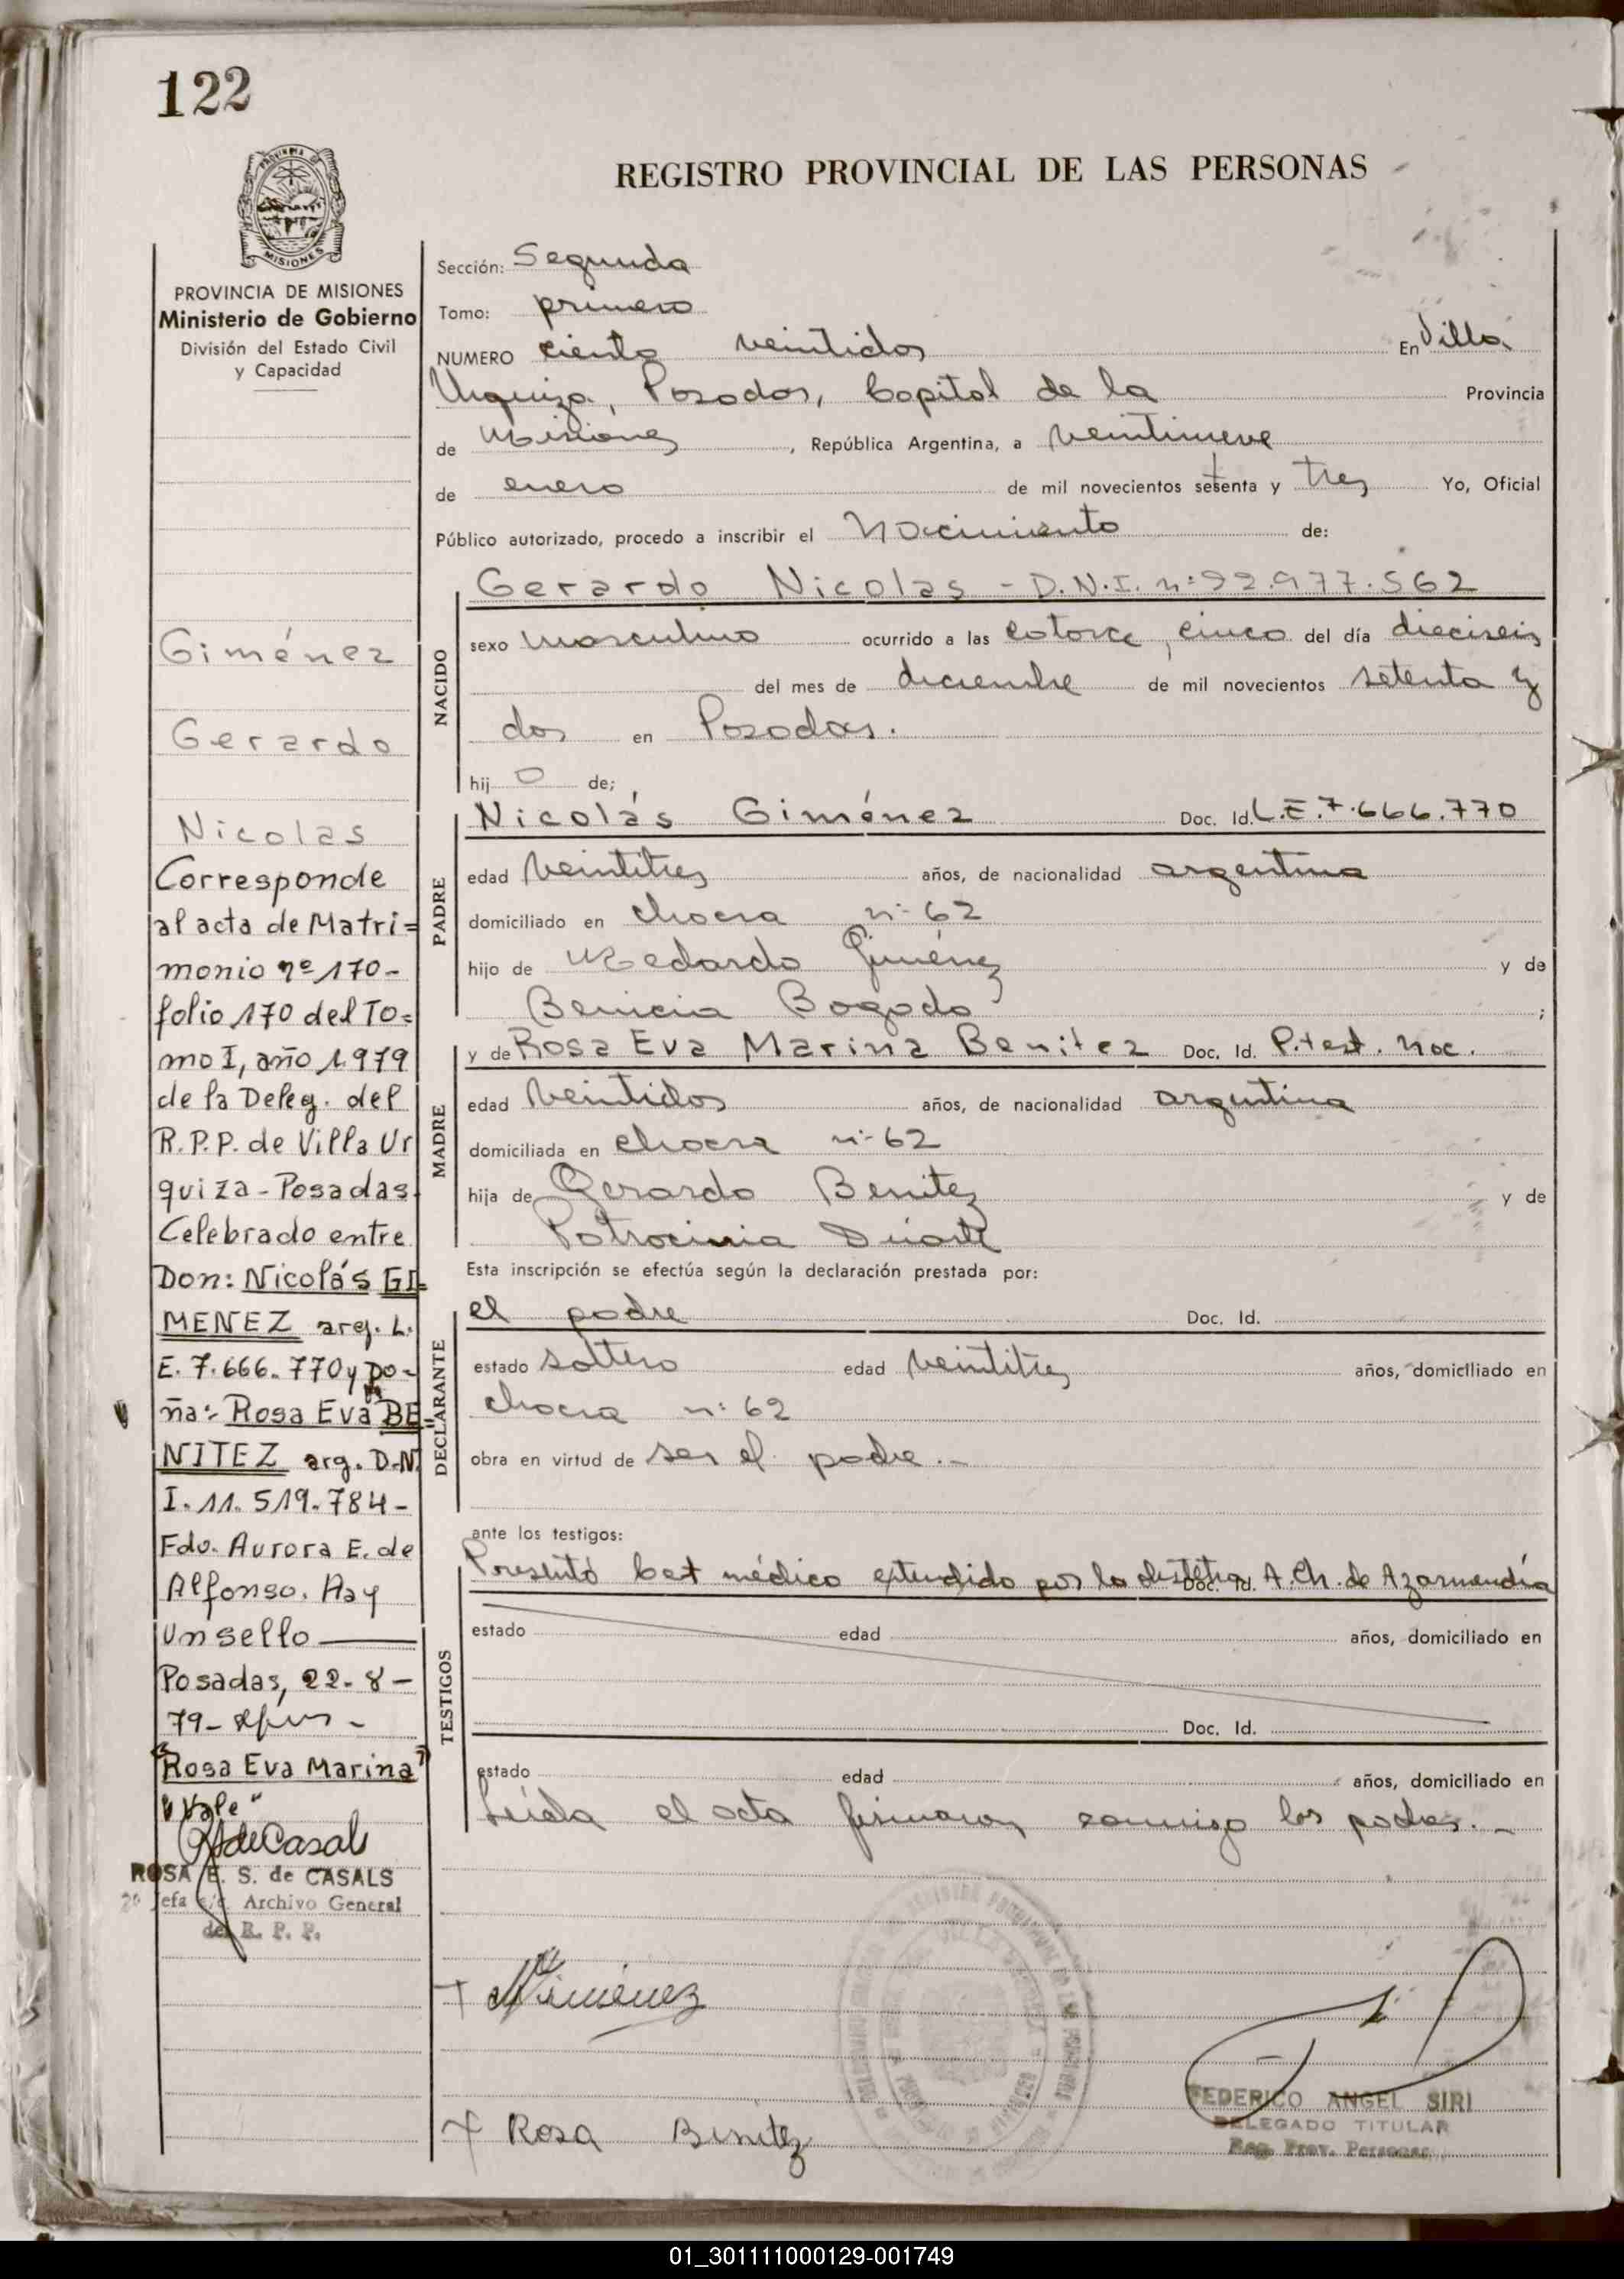 122
REGISTRO PROVINCIAL DE LAS PERSONAS
MISIONES
PROVINCIA DE MISIONES
Ministerio de Gobierno
División del Estado Civil
y Capacidad
Giménez
Gerardo
Nicolas
Corresponde
al acta de Matri=
monio nº 170-
folio 170 del To=
mo I, año 1979
de la Deleg. del
R.P.P. de Villa Ur
quiza - Posadas.
Celebrado entre
Don: Nicolás GI=
MENEZ arg. L.
E. 7.666.770 y Do-
ña: Rosa Eva BE=
NITEZ arg. D.N.
I. 11.519.784-
Fdo. Aurora E. de
Alfonso. Hay
un sello
Posadas, 22-8-
79-
"Rosa Eva Marina"
"Vale"
ROSA E. S. de CASALS
Jefa Archivo General
del R. P. P.
Sección: Segunda
Tomo: primero
NUMERO ciento veintidos En Villa
Urquiza, Posadas, Capital de la Provincia
de Misiones, República Argentina, a veintinueve
de enero de mil novecientos setenta y tres Yo, Oficial
Público autorizado, procedo a inscribir el Nacimiento de:
NACIDO
Gerardo Nicolas - D.N.I. nº 92.977.562
sexo masculino ocurrido a las catorce, cinco del día dieciseis
del mes de diciembre de mil novecientos setenta y
dos en Posadas.
hij o de;
PADRE
Nicolás Giménez Doc. Id. L.E. 7.666.770
edad veintitres años, de nacionalidad argentina
domiciliado en chacra nº 62
hijo de Medardo Giménez y de
Benicia Bogado ;
MADRE
y de Rosa Eva Marina Benitez Doc. Id. P. test. nac.
edad veintidos años, de nacionalidad argentina
domiciliada en chacra nº 62
hija de Gerardo Benitez y de
Patrocinia Duarte
Esta inscripción se efectúa según la declaración prestada por:
DECLARANTE
el padre Doc. Id.
estado soltero edad veintitres años, domiciliado en
chacra nº 62
obra en virtud de ser el padre.-
ante los testigos:
TESTIGOS
Presentó Cert médico extendido por la obstetra Doc. Id. A. Ch. de Azarmendía
estado edad años, domiciliado en
Doc. Id.
estado edad años, domiciliado en
Leída el acta firmaron conmigo los padres.-
NGiménez
Rosa Benitez
FEDERICO ANGEL SIRI
DELEGADO TITULAR
Reg. Prov. Personas
01_301111000129-001749